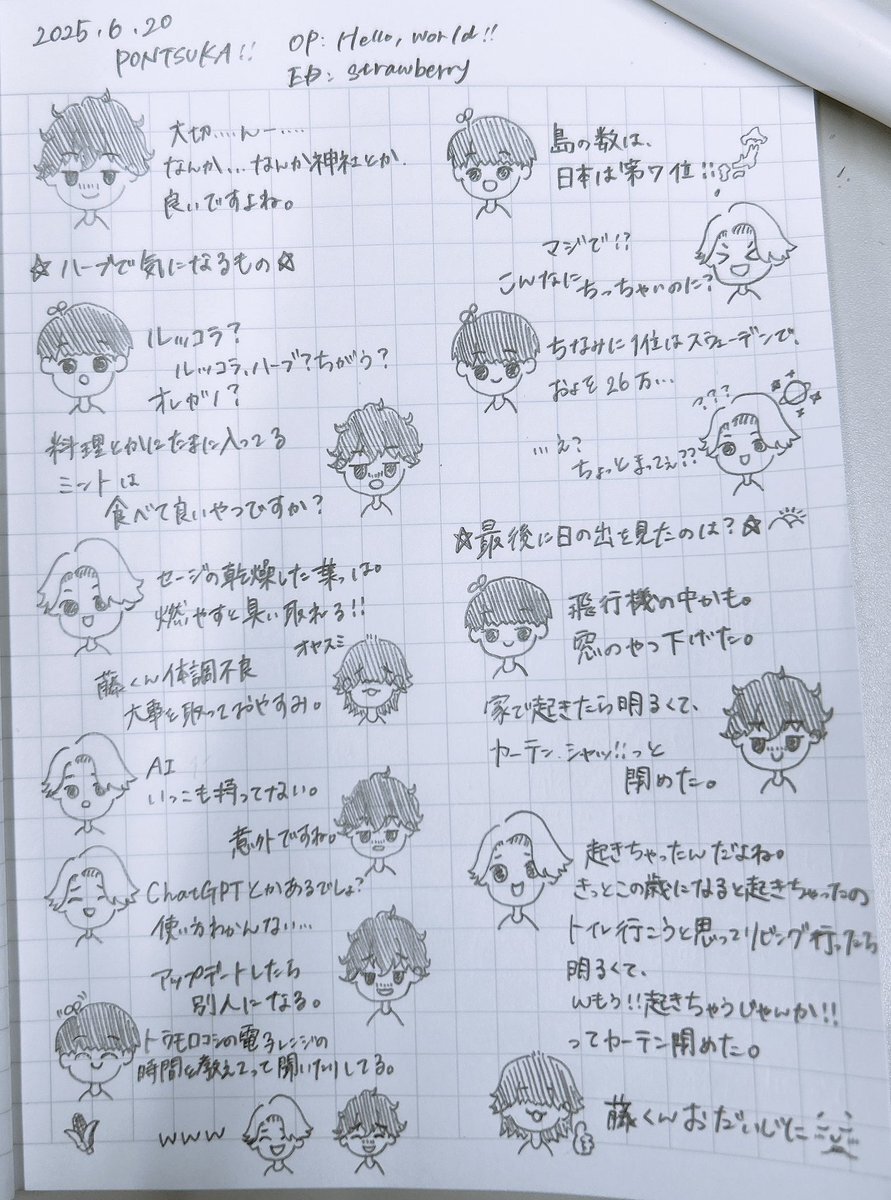 2025.6.20
PONTSUKA!!
OP: Hello, world!!
ED: strawberry
大切……んー……
なんか…なんか神社とか
良いですよね。
☆ハーブで気になるもの☆
ルッコラ?
ルッコラ、ハーブ?ちがう?
オレガノ?
料理とかにたまに入ってる
ミントは
食べて良いやつですか?
セージの乾燥した葉っぱ。
燃やすと臭い取れる!!
オヤスミ
藤くん体調不良
大事を取っておやすみ。
AI
いっこも持ってない。
意外ですね。
ChatGPTとかあるでしょ?
使い方わかんない…
アップデートしたら
別人になる。
トウモロコシの電子レンジの
時間を教えてって聞いたりしてる。
www
島の数は、
日本は第7位!!
マジで!?
こんなにちっちゃいのに?
ちなみに1位はスウェーデンで、
およそ26万…
???
…え?
ちょっとまってぇ??
☆最後に日の出を見たのは?☆
飛行機の中かも。
窓のやつ下げた。
家で起きたら明るくて、
カーテン、シャッ!!っと
閉めた。
起きちゃったんだよね。
きっとこの歳になると起きちゃったの
トイレ行こうと思ってリビング行ったら
明るくて、
んもう!!起きちゃうじゃんか!!
ってカーテン閉めた。
藤くんおだいじに